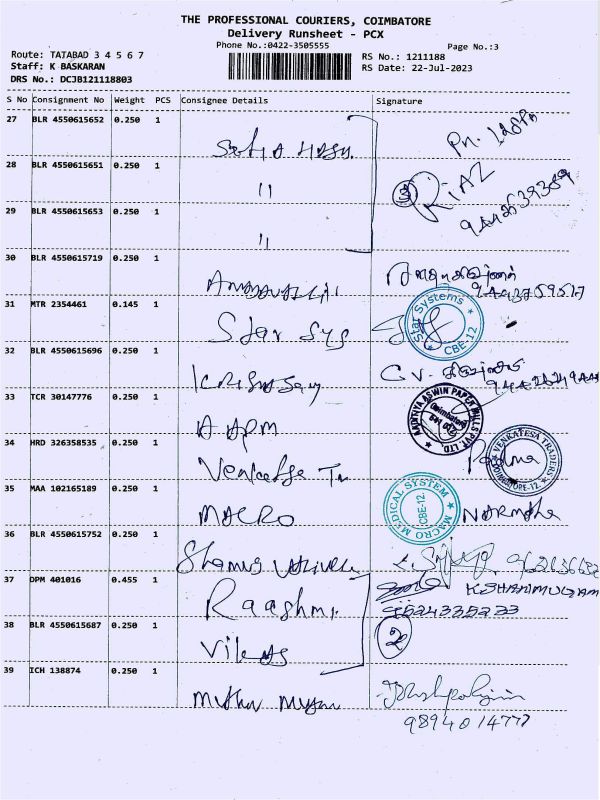 THE PROFESSIONAL COURIERS, COIMBATORE
Delivery Runsheet - PCX
Phone No.:0422-3505555
Page No.:3
Route: TATABAD 3 4 5 6 7
RS No.: 1211188
Staff: K BASKARAN
RS Date: 22-Jul-2023
DRS No.: DCJB121118803
S No Consignment No Weight PCS Consignee Details Signature
27 BLR 4550615652 0.250 1
28 BLR 4550615651 0.250 1 "
RIAZ
29 BLR 4550615653 0.250 1 "
30 BLR 4550615719 0.250 1
31 MTR 2354461 0.145 1 Star Sys
Star Systems
CBE-12
32 BLR 4550615696 0.250 1
33 TCR 30147776 0.250 1 AAPM
AADITHYA ASWIN PAPER MILLS PVT. LTD.
Coimbatore
641 012
34 HRD 326358535 0.250 1 Venkatesa Tr
Padma
VENKATESA TRADERS
COIMBATORE-12.
35 MAA 102165189 0.250 1 MACRO
MACRO MEDICAL SYSTEM
CBE-12.
NARMATHA
36 BLR 4550615752 0.250 1
37 DPM 401016 0.455 1 Raashmi
K.SHANMUGAM
9524335233
38 BLR 4550615687 0.250 1 Vilas
2
39 ICH 138874 0.250 1
9894014777